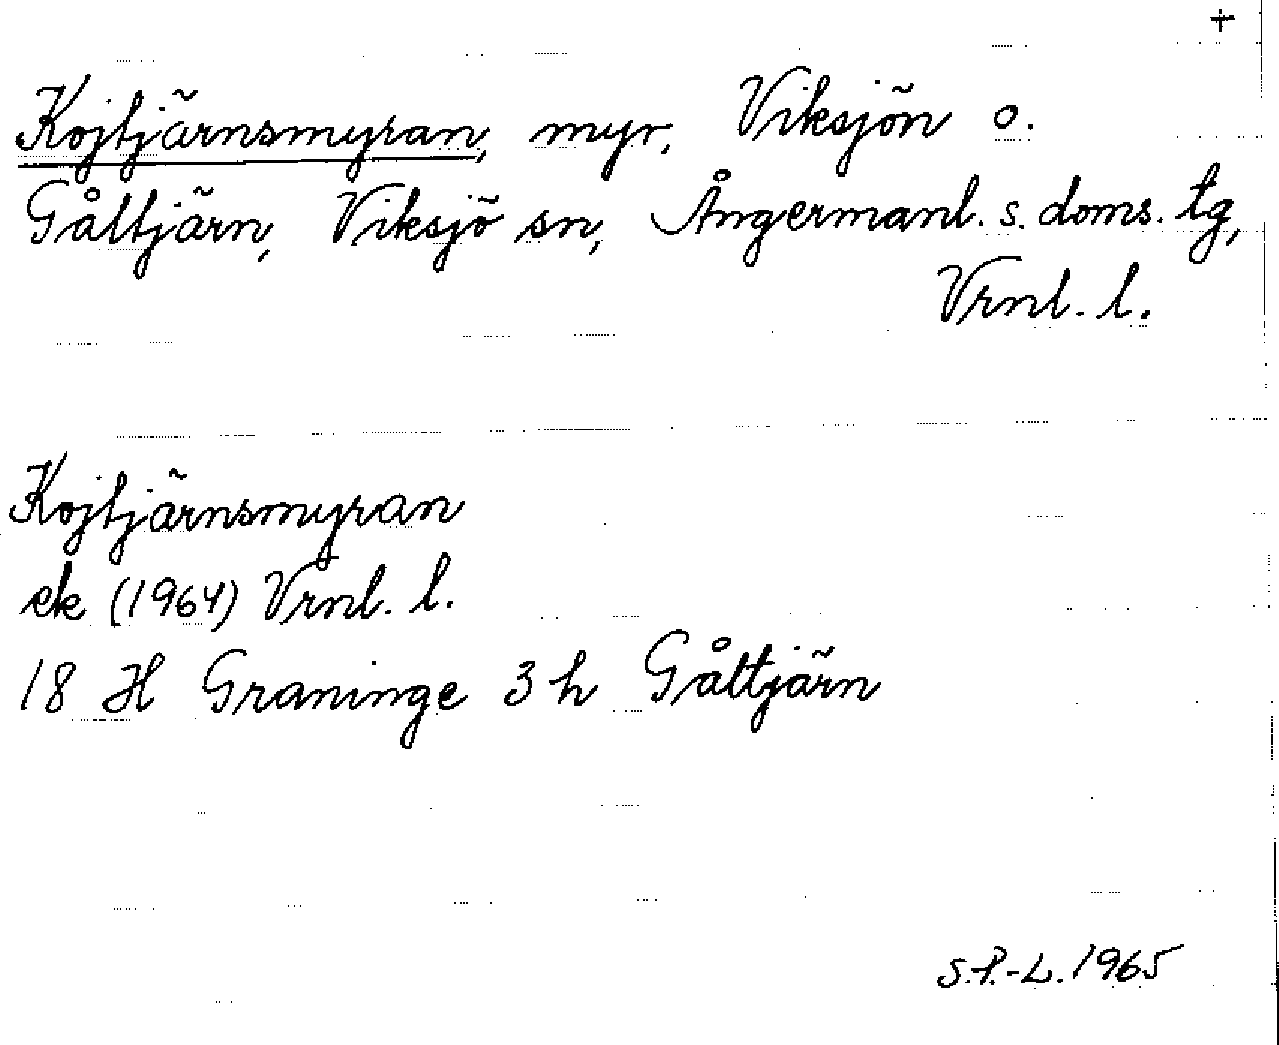 +
Kojtjärnsmyran, myr, Viksjön o.
Gåltjärn, Viksjö sn, Ångermanl. s. doms. tg,
Vrnl. l.
Kojtjärnsmyran
ek (1964) Vrnl. l.
18 H Graninge 3 h Gåltjärn
S.P.-L. 1965